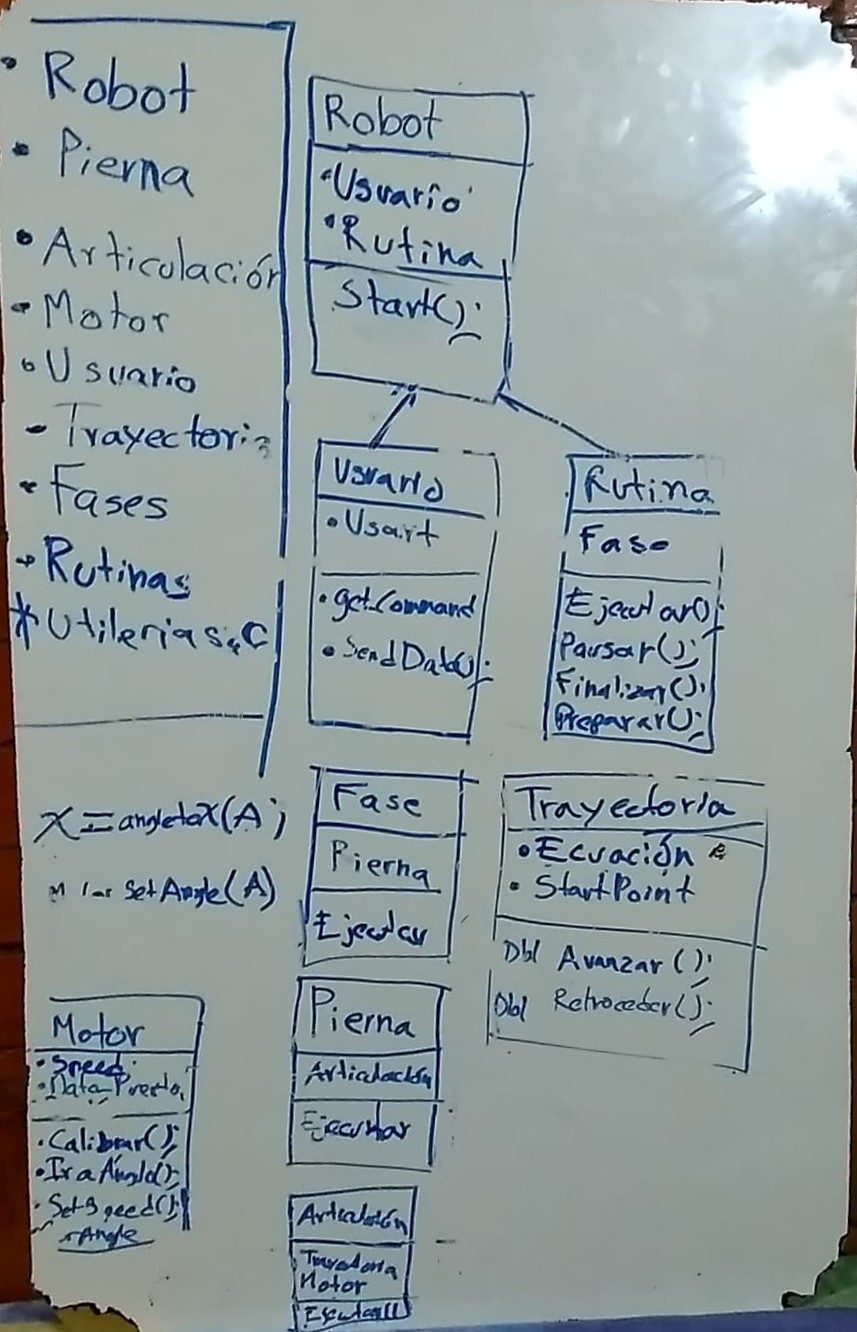 • Robot
• Pierna
• Articulación
- Motor
• Usuario
- Trayectoria
• Fases
→ Rutinas
* Utilerias.C
Robot
• Usuario
• Rutina
Start();
Usuario
• Usart
• getCommand
• SendData();
Rutina
Fase
Ejecutar();
Pausar();
Finalizar();
Preparar();
X = angletoX(A);
SetAngle(A)
Fase
Pierna
Ejecutar
Trayectoria
• Ecuación
• StartPoint
Dbl Avanzar();
Dbl Retroceder();
Motor
• Speed
• Data_Puerto
• Calibrar();
• Ir a Angulo();
• Set Speed();
→Angle
Pierna
Articulación
Ejecutar
Articulación
Trayectoria
Motor